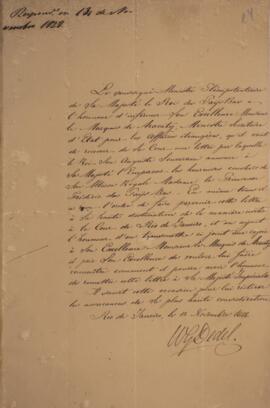 Respond.º em 14 de No-
vembro 1828.
Le soussigné Ministre Plénipotentiaire
de Sa Majesté le Roi des Pays-Bas a
l'honneur d'informer Son Excellence Monsieur
le Marquis de Aracaty, Ministre Secrétaire
d'Etat pour les Affaires étrangères, qu'il vient
de recevoir de Sa Cour une lettre par laquelle
le Roi Son Auguste Souverain annonce à
Sa Majesté l'Empereur les heureuses couches de
Son Altesse Royale Madame la Princesse
Frédéric des Pays-Bas. En même tems il
a l'ordre de faire parvenir cette lettre
à Sa haute destination de la manière usitée
à la Cour de Rio de Janeiro, et en ayant
l'honneur d'en transmettre ci-joint une copie
à Son Excellence Monsieur le Marquis de Aracaty
il prie Son Excellence de vouloir lui faire
connaître comment il pourra avoir l'honneur
de remettre cette lettre à Sa Majesté Impériale.
Il saisit cette occasion pour lui réitérer
les assurances de Sa plus haute considération.
Rio de Janeiro, le 11 Novembre 1828.
WGDedel.